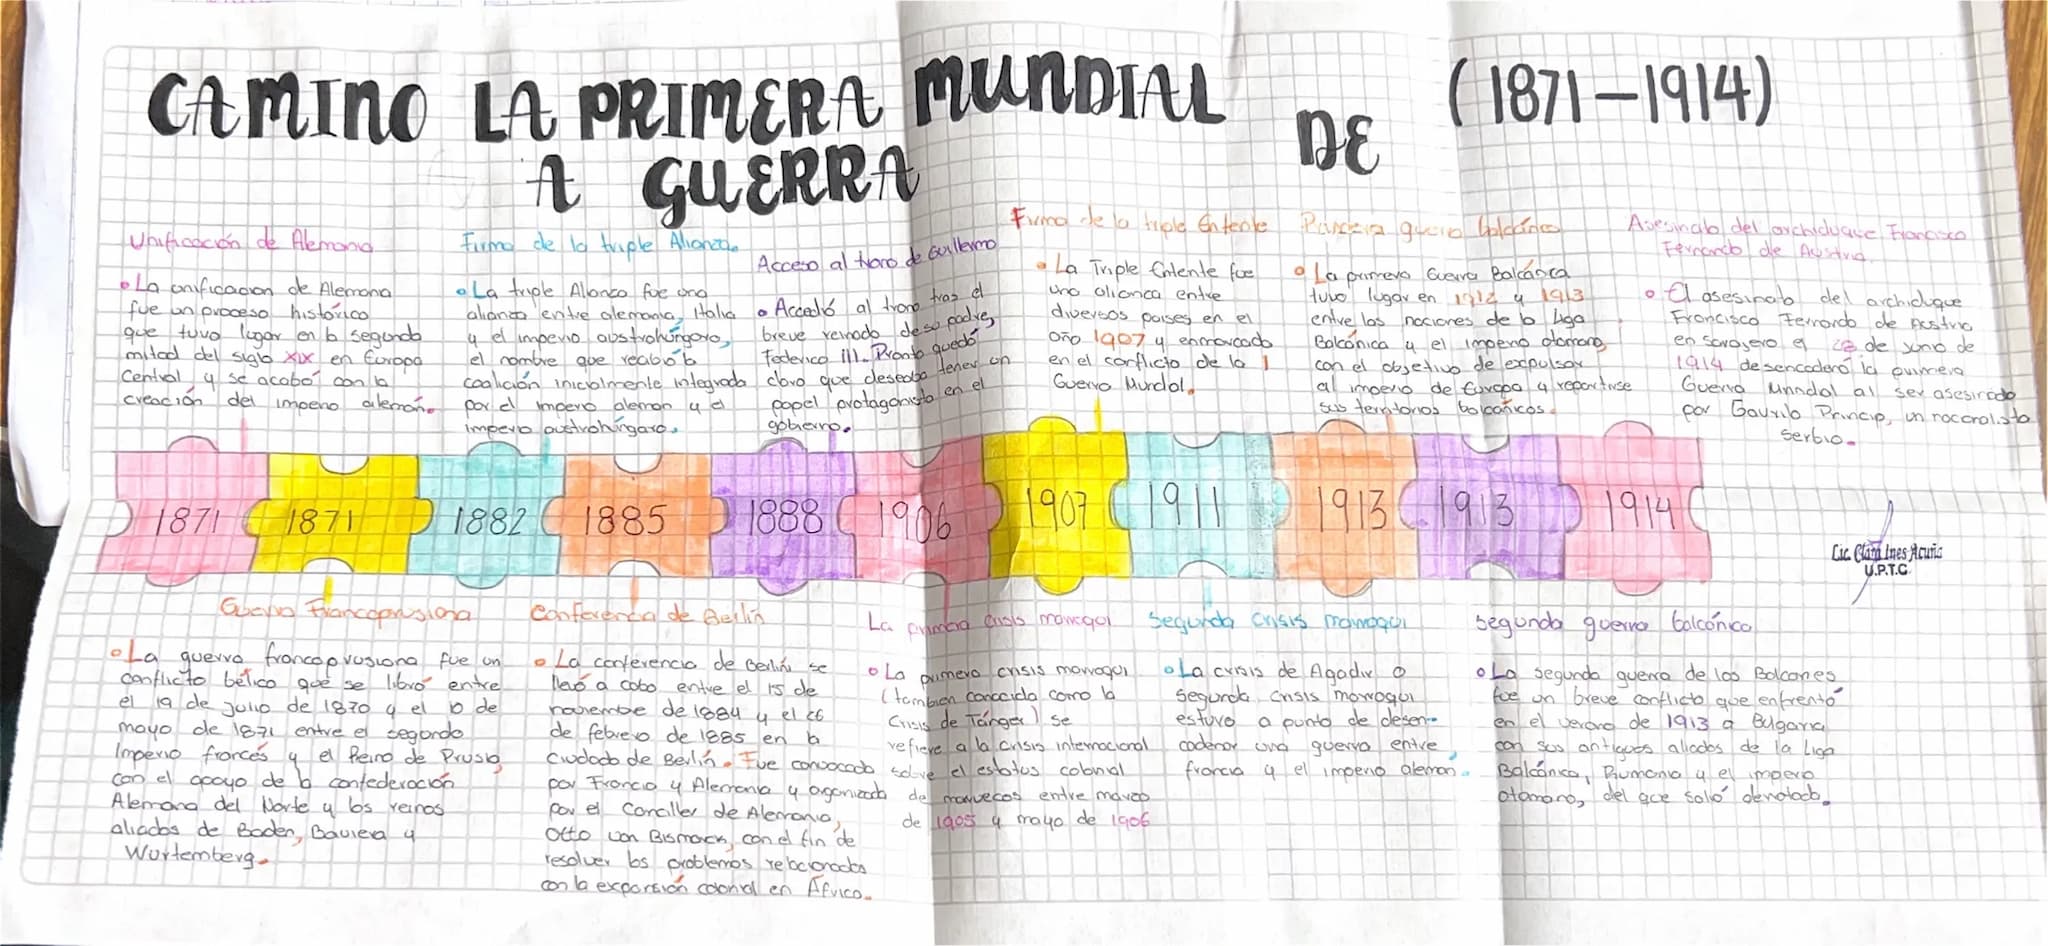 CAMINO LA PRIMERA MUNDIAL DE (1871-1914)
A GUERRA
Unificación de Alemania
• La unificacion de Alemana
fue un proceso histórico
que tuvo lugar en la segunda
mitad del siglo XIX en Europa
Central y se acabó con la
creación del imperio alemán.
Firma de la triple Alianza.
• La triple Alianza fue una
alianza entre alemania, Italia
y el imperio austrohúngaro,
el nombre que recibió la
coalición inicialmente integrada
por el imperio aleman y el
imperio austrohúngaro.
Acceso al trono de Guillermo
• Accedió al trono tras el
breve reinado de so padre,
Federico III. Pronto quedó
claro que deseaba tener un
papel protagonista en el
gobierno.
Firma de la triple Entente
• La Triple Entente fue
una alianca entre
diversos países en el
año 1907 y enmarcado
en el conflicto de la I
Guerra Mundial.
Primera guerra balcánica
• La primera Guerra Balcánica
tuvo lugar en 1912 y 1913
entre las naciones de la Liga
Balcánica y el imperio otomano,
con el objetivo de expulsar
al imperio de Europa y repartirse
sus territorios balcánicos.
Asesinato del archiduque Francisco
Fernando de Austria.
• El asesinato del archidugue
Francisco Fernando de Austria
en sarajevo el 28 de junio de
1914 desencadenó la primera
Guerra Mundial al ser asesinado
por Gavrilo Princip, un nacionalista
serbio.
1871 1871 1882 1885 1888 1906 1907 1911 1913 1913 1914
Lic. Clara Ines Acuña
U.P.T.C.
Guerra Francoprusiana
• La guerra francoprusiana fue un
conflicto bélico que se libró entre
el 19 de julio de 1870 y el 10 de
mayo de 1871 entre el segundo
Imperio francés y el Reino de Prusia,
con el apoyo de la confederación
Alemana del Norte y los reinos
aliados de Baden, Baviera y
Wurtemberg.
Conferencia de Berlín
• La conferencia de Berlín se
llevó a cabo entre el 15 de
noviembre de 1884 y el 26
de febrero de 1885 en la
ciudad de Berlín. Fue convocada
por Francia y Alemania y organizada
por el Canciller de Alemania,
Otto von Bismarck, con el fin de
resolver los problemas relacionados
con la expansión colonial en África.
La primera crisis marroqui
• La primera crisis marroqui
(tambien conocida como la
Crisis de Tánger) se
refiere a la crisis internacional
sobre el estatus colonial
de marruecos entre marzo
de 1905 y mayo de 1906
Segunda crisis marroqui
• La crisis de Agadir o
Segunda crisis marroqui
estuvo a punto de desen-
cadenar una guerra entre
francia y el imperio aleman.
segunda guerra balcánica
• La segunda guerra de los Balcanes
fue un breve conflicto que enfrentó
en el verano de 1913 a Bulgaria
con sus antiguos aliados de la Liga
Balcánica, Rumania y el imperio
otomano, del que salió derrotada.